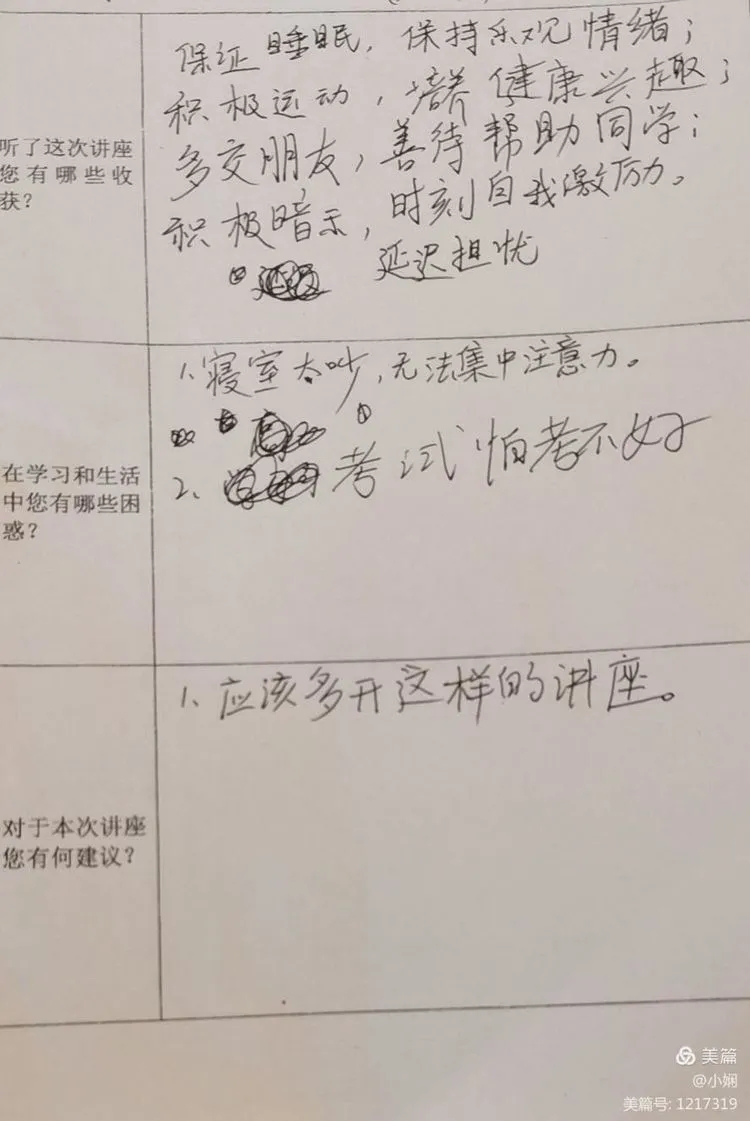 听了这次讲座
您有哪些收
获？
保证睡眠，保持乐观情绪；
积极运动，培养健康兴趣；
多交朋友，善待帮助同学；
积极暗示，时刻自我激厉力。
延迟担忧
在学习和生活
中您有哪些困
惑？
1、寝室太吵，无法集中注意力。
2、考试怕考不好
对于本次讲座
您有何建议？
1、应该多开这样的讲座。
美篇
@小娴
美篇号：1217319